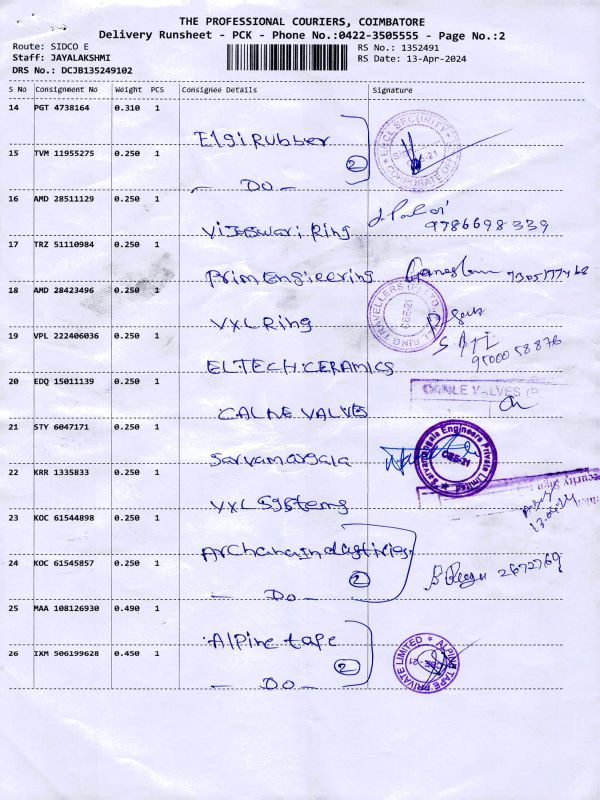 THE PROFESSIONAL COURIERS, COIMBATORE
Delivery Runsheet - PCK - Phone No.:0422-3505555 - Page No.:2
Route: SIDCO E
RS No.: 1352491
Staff: JAYALAKSHMI
RS Date: 13-Apr-2024
DRS No.: DCJB135249102
S No Consignment No Weight PCS Consignee Details Signature
14 PGT 4738164 0.310 1
Elgi Rubber
2
15 TVM 11955275 0.250 1
- DO -
16 AMD 28511129 0.250 1
Vijeswari Ring
9786698339
17 TRZ 51110984 0.250 1
Prim Engineering
18 AMD 28423496 0.250 1
VXL Ring
19 VPL 222406036 0.250 1
ELTECH CERAMICS
9500058876
20 EDQ 15011139 0.250 1
CALNE VALVES
21 STY 6047171 0.250 1
Sarvamangala
Sarvamangala Engineers Private Limited
CBE-21
22 KRR 1335833 0.250 1
VXL Systems
23 KOC 61544898 0.250 1
Archana Industries
24 KOC 61545857 0.250 1
2
2672769
- DO -
25 MAA 108126930 0.490 1
Alpine tape
2
26 IXM 506199628 0.450 1
ALPINE TAPE PRIVATE LIMITED
CBE-21
- DO -